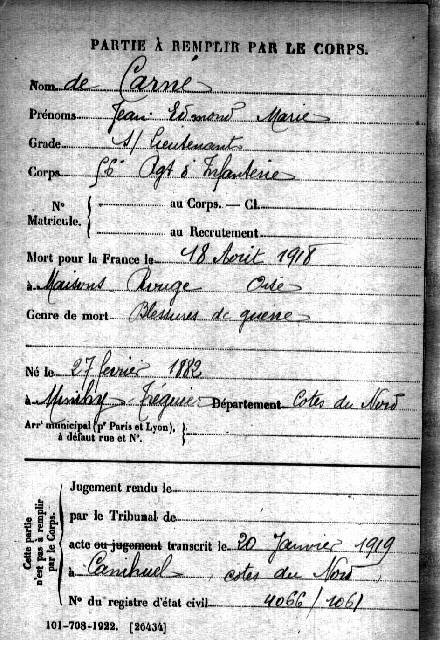 PARTIE À REMPLIR PAR LE CORPS.
Nom de Carné
Prénoms Jean Edmond Marie
Grade s/ lieutenant
Corps Rgt d'Infanterie
N° Matricule. { au Corps. — Cl.
au Recrutement
Mort pour la France le 18 Août 1918
à Maisons Rouge Oise
Genre de mort Blessures de guerre
Né le 27 février 1882
à Minihy Tréguier Département Cotes du Nord
Arrt municipal (pr Paris et Lyon), à défaut rue et N°. }
Cette partie n'est pas à remplir par le Corps.
Jugement rendu le
par le Tribunal de
acte ou jugement transcrit le 20 Janvier 1919
à Camlez, cotes du Nord
N° du registre d'état civil 4066/1061
101-708-1922. [26434]